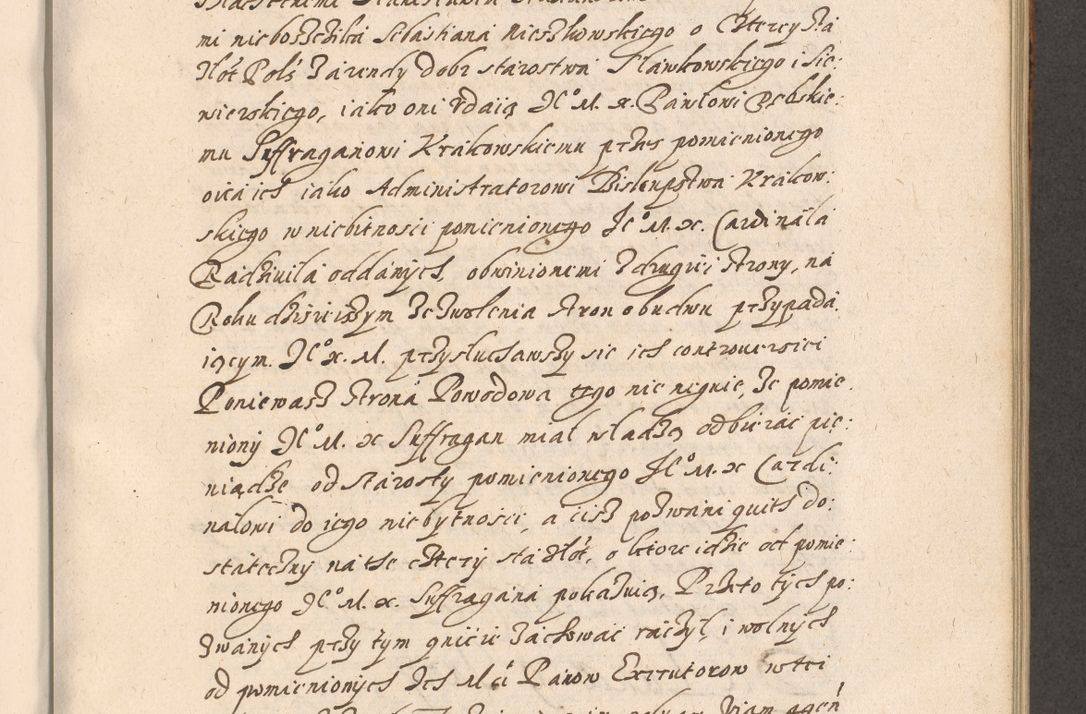 mi nieboszczika Sebastiana Nieszkowskiego o Cztery sta
złot Pols z arendy dobr starostwa Slawkowskiego i Sie:
wierskiego, iako oni vdaią Jeº M. x. Pawłowi Dębskie:
mu Suffraganowi Krakowskiemu przez pomienionego
oica ich iako Administratorowi Biskupstwa Krakow:
skiego w niebitnosci pomienionego Jeº M. x. Cardinala
Radziwila oddanych, obwinionemi z drugiei strony, na
Roku dzisieiszym ze zwolenia stron obudwu przypada:
iącym. Jeº x. M. przysłuchawszy sie ich controuersiei
Poniewasz strona Powodowa tego nie neguie, ze pomie
niony Jeº M. x Suffragan miał władzą odbierac pie:
niądze od starosty pomienionego Jeº M. x Cardi:
nałowi do iego niebytnosci, a cisz pozwani quith do:
stateczny na the cztery sta złot, o ktore idzie od pomie:
nionego Jeº M. x. Suffragana pokazuią, Przeto tych po:
zwanych przy tym quicie zachować raczył, i wolnych
od pomienionych Ich M ci Panow Exekutorow w tei